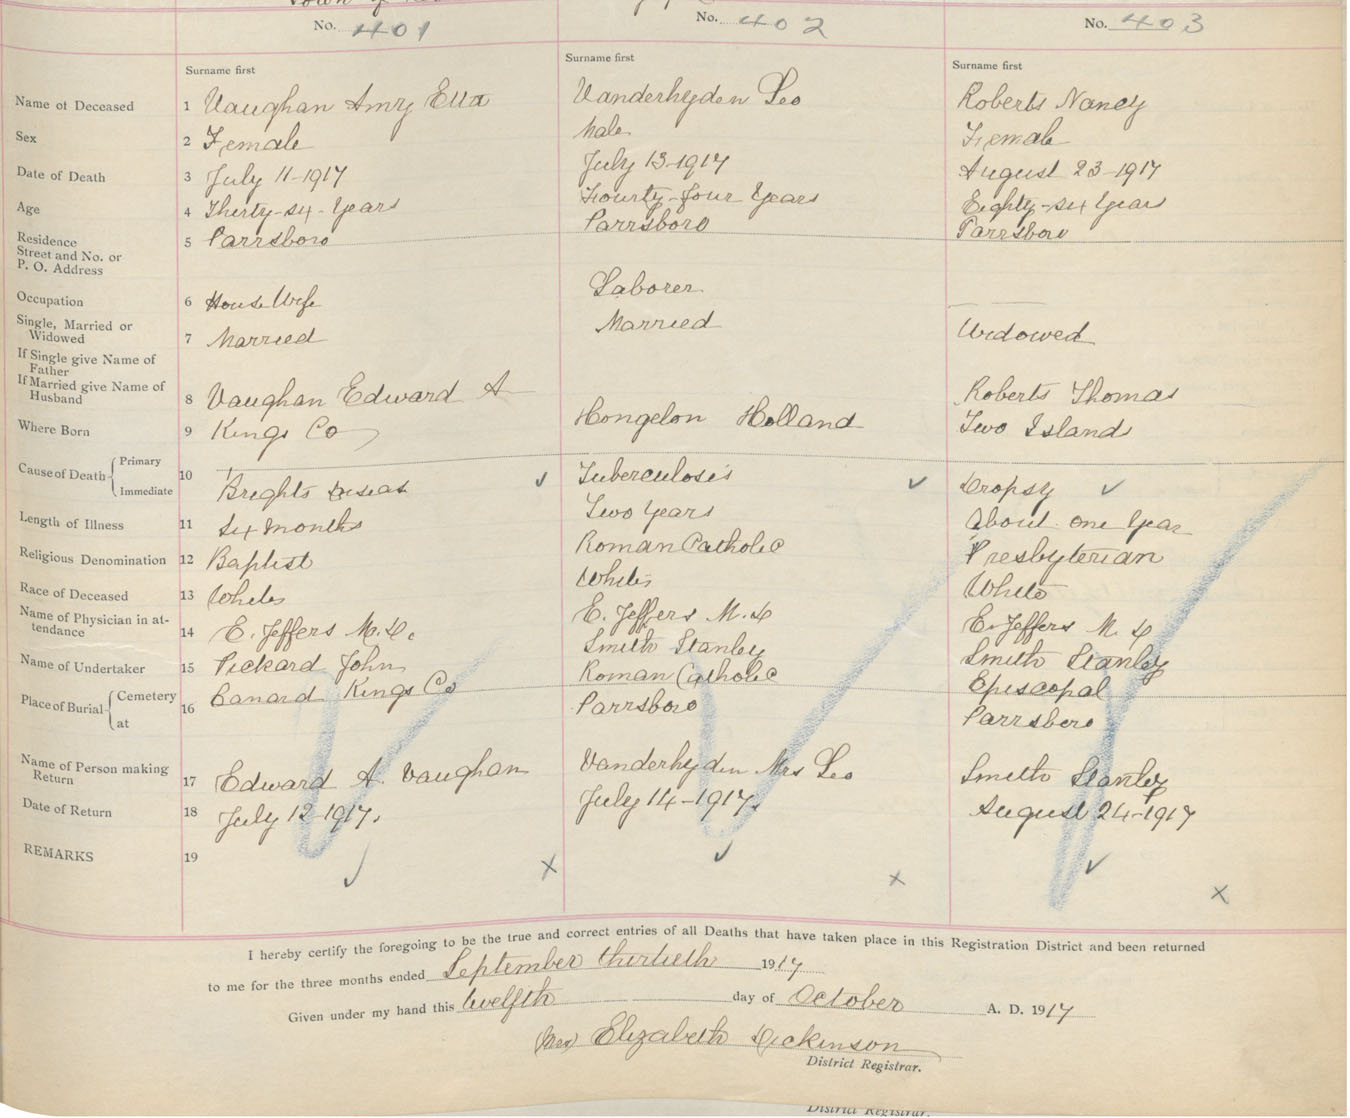 Town of
No. 401
No. 402
No. 403
Surname first
Surname first
Surname first
Name of Deceased 1 Vaughan Amry Etta
Vanderhyden Leo
Roberts Nancy
Sex 2 Female
Male
Female
Date of Death 3 July 11-1917
July 13-1917
August 23-1917
Age 4 Thirty-six-Years
Fourty-four Years
Eighty-six Years
Residence
Street and No. or
P. O. Address
5 Parrsboro
Parrsboro
Parrsboro
Occupation 6 House Wife
Laborer
Single, Married or
Widowed
7 Married
Married
Widowed
If Single give Name of
Father
If Married give Name of
Husband
8 Vaughan Edward A
Roberts Thomas
Where Born 9 Kings Co
Hongelon Holland
Two Islands
Cause of Death Primary
Immediate
10 Brights diseas
Tuberculosis
Dropsy
Length of Illness 11 Six months
Two Years
About one Year
Religious Denomination 12 Baptist
Roman Catholic
Presbyterian
Race of Deceased 13 White
White
White
Name of Physician in at-
tendance
14 E. Jeffers M.D.
E. Jeffers M. D
E. Jeffers M. D
Name of Undertaker 15 Pickard John
Smith Stanley
Smith Stanley
Place of Burial Cemetery
at
16 Canard Kings Co
Roman Catholic
Parrsboro
Episcopal
Parrsboro
Name of Person making
Return
17 Edward A. Vaughan
Vanderhyden Mrs Leo
Smith Stanley
Date of Return 18 July 12-1917.
July 14-1917.
August 24-1917
REMARKS 19
I hereby certify the foregoing to be the true and correct entries of all Deaths that have taken place in this Registration District and been returned
to me for the three months ended September thirtieth 1917
Given under my hand this twelfth day of October A. D. 1917
(Mrs) Elizabeth Dickinson
District Registrar.
District Registrar.